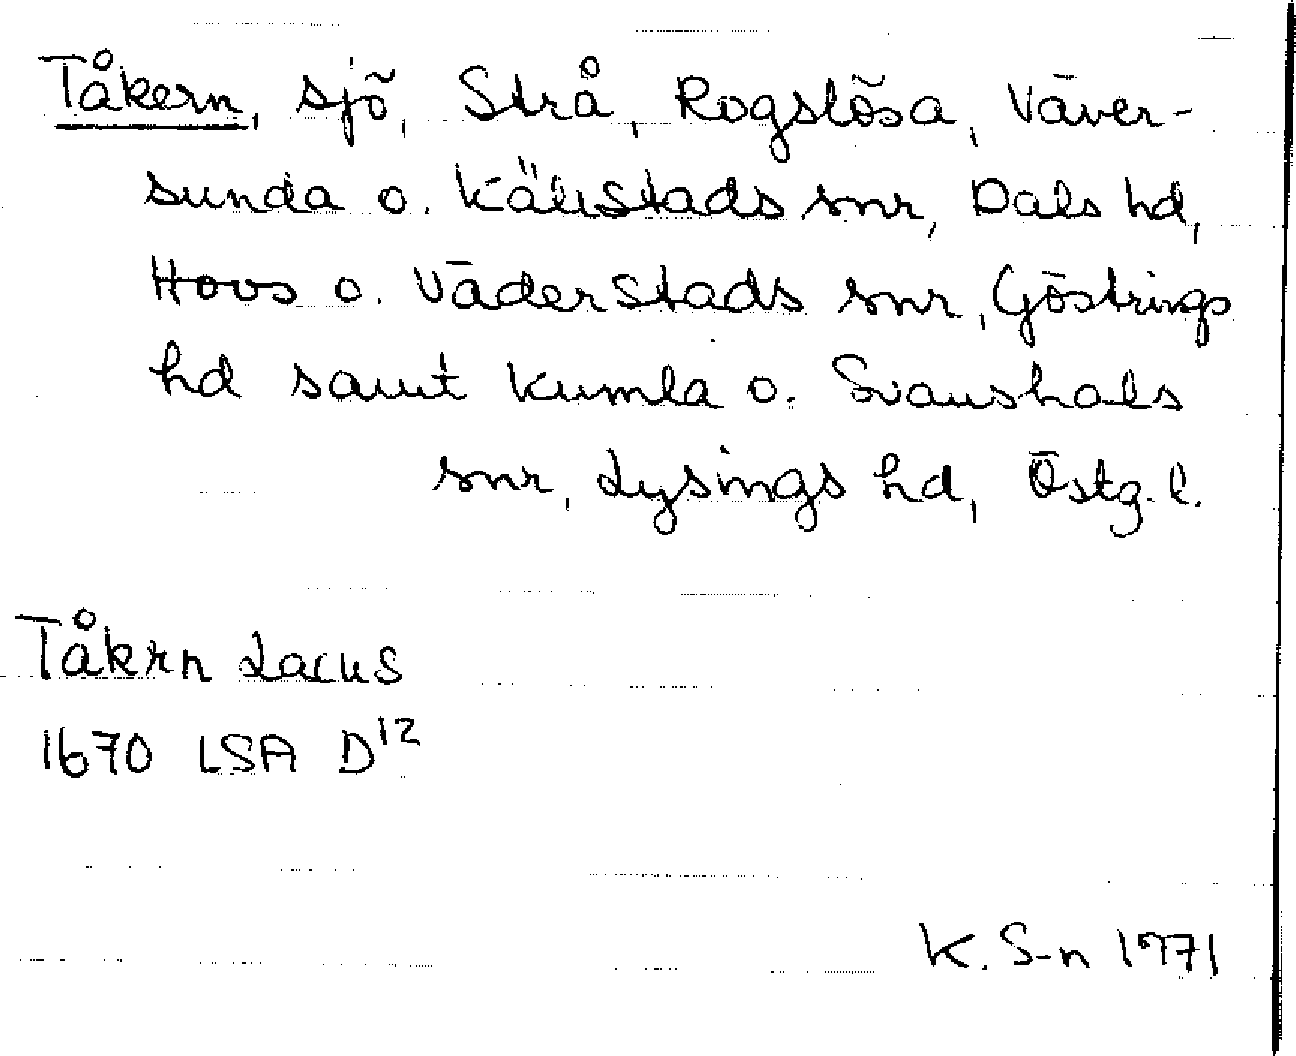 Tåkern, sjö, Strå, Rogslösa, Väver-
sunda o. Källstads snr, Dals hd,
Hovs o. Väderstads snr, Göstrings
hd samt Kumla o. Svanshals
snr, Lysings hd, Östg. l.
Tåkrn Lacus
1670 LSA D12
K. S-n 1971